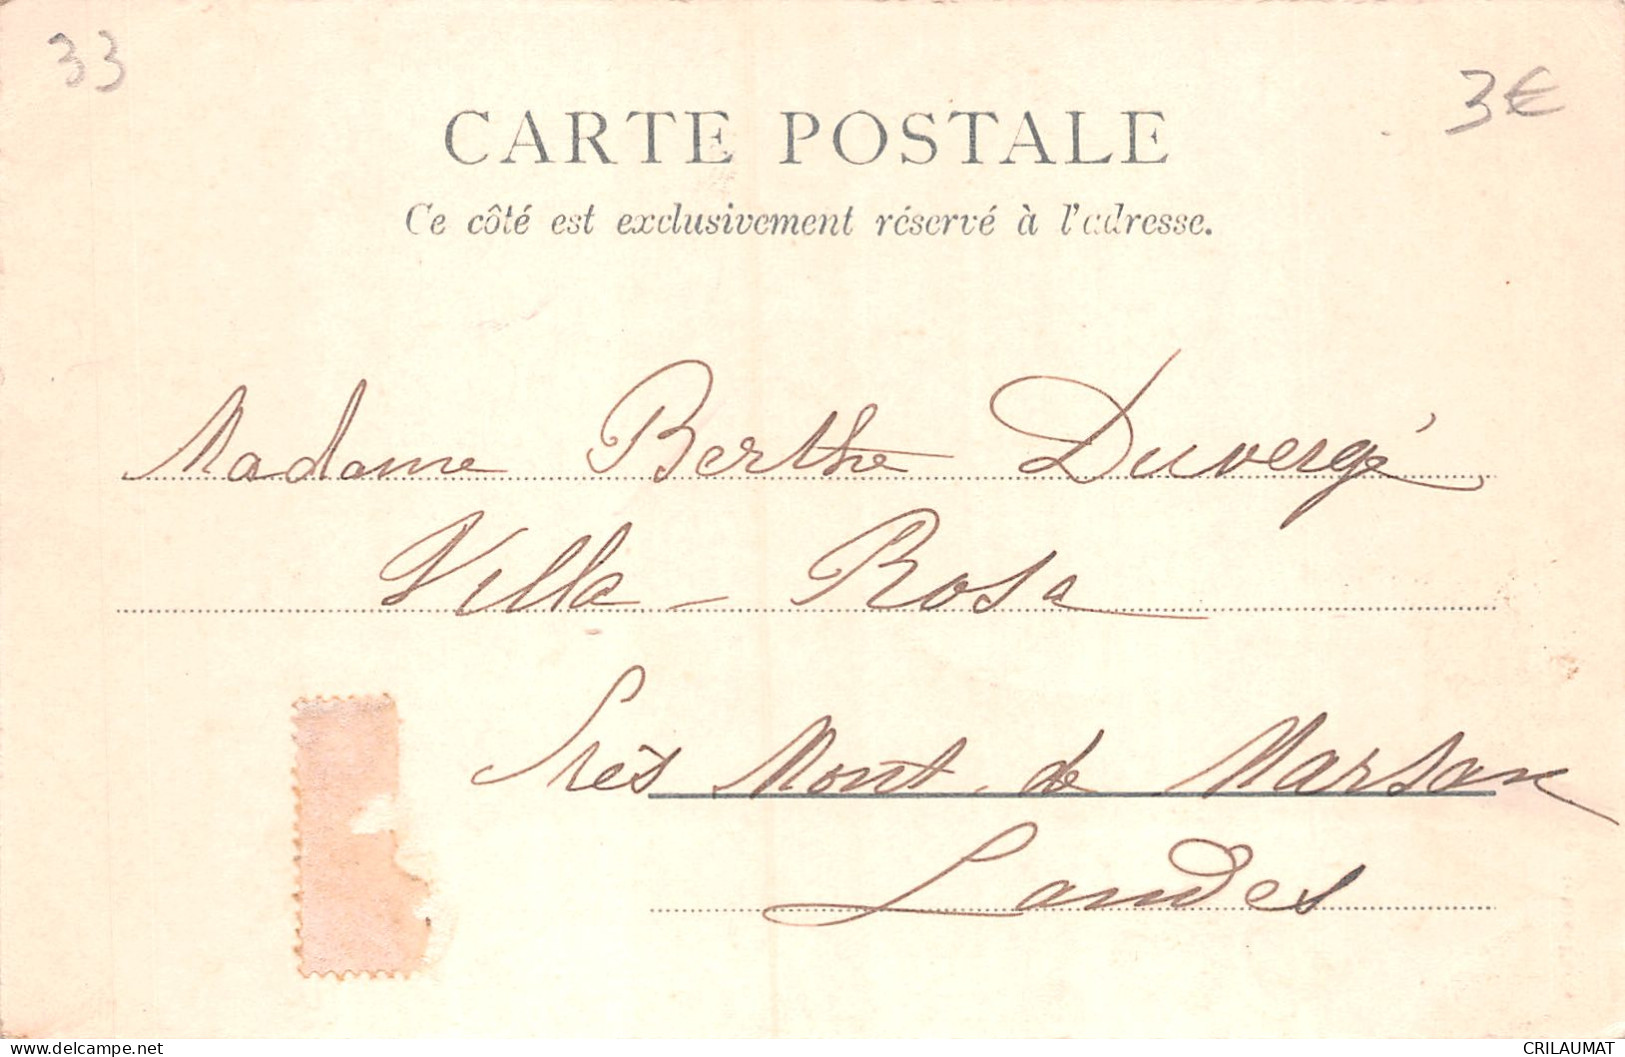 33
3€
CARTE POSTALE
Ce côté est exclusivement réservé à l'adresse.
Madame Berthe Duvergé
Villa - Rosa
Près Mont. de Marsan
Landes
www.delcampe.net
CRILAUMAT